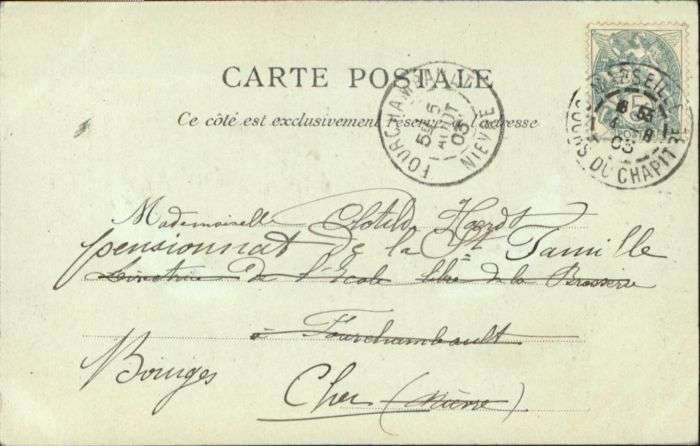 CARTE POSTALE
Ce côté est exclusivement réservé à l'adresse
FOURCHAMBAULT
5E 5
AOUT
03
NIEVRE
MARSEILLE
4 8
03
COURS DU CHAPITRE
Mademoiselle Clotilde
pensionnat de la Ste Famille
Directrice de l'Ecole libre de la Brosserie
à Fourchambault
Bourges
Cher (Nièvre)